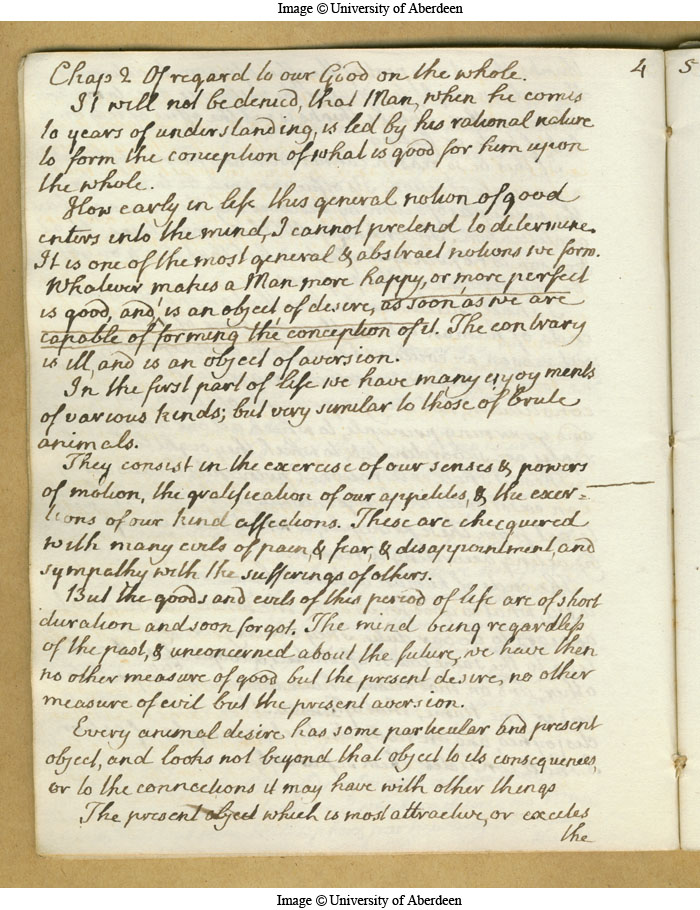 Image © University of Aberdeen
4
5
Chap 2 Of regard to our Good on the whole.
It will not be denied, that Man, when he comes
to years of understanding, is led by his rational nature
to form the conception of what is good for him upon
the whole.
How early in life this general notion of good
enters into the mind, I cannot pretend to determine.
It is one of the most general & abstract notions we form.
Whatever makes a Man more happy, or more perfect
is good, and is an object of desire, as soon as we are
capable of forming the conception of it. The contrary
is ill, and is an object of aversion.
In the first part of life we have many enjoyments
of various kinds; but very similar to those of brute
animals.
They consist in the exercise of our senses & powers
of motion, the gratification of our appetites, & the exer-
tions of our kind affections. These are chequered
with many evils of pain, & fear, & disappointment, and
sympathy with the sufferings of others.
But the goods and evils of this period of life are of short
duration and soon forgot. The mind being regardless
of the past, & unconcerned about the future, we have then
no other measure of good but the present desire, no other
measure of evil but the present aversion.
Every animal desire has some particular and present
object, and looks not beyond that object to its consequences,
or to the connections it may have with other things
The present object which is most attractive, or excites
the
Image © University of Aberdeen